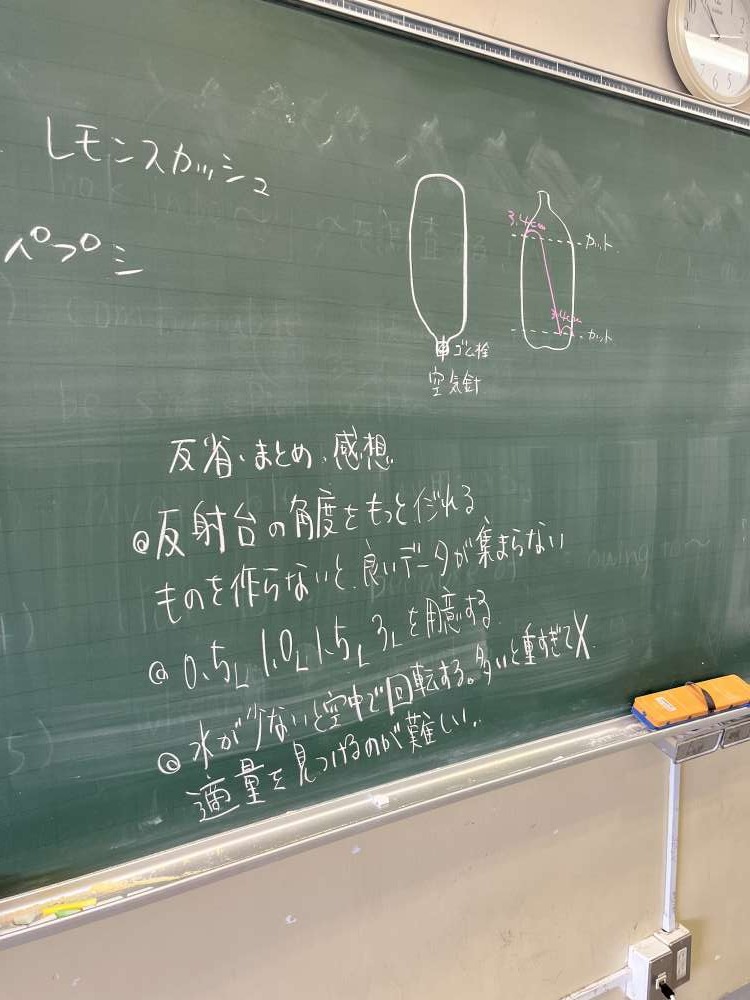 レモンスカッシュ
ペプシ
3.4cm
カット
3.4cm
カット
ゴム栓
空気針
反省・まとめ・感想
◎反射台の角度をもっとイジれる
ものを作らないと、良いデータが集まらない
◎ 0.5L 1.0L 1.5L 3Lを用意する
◎ 水が少ないと空中で回転する。多いと重すぎて✕
適量を見つけるのが難しい。